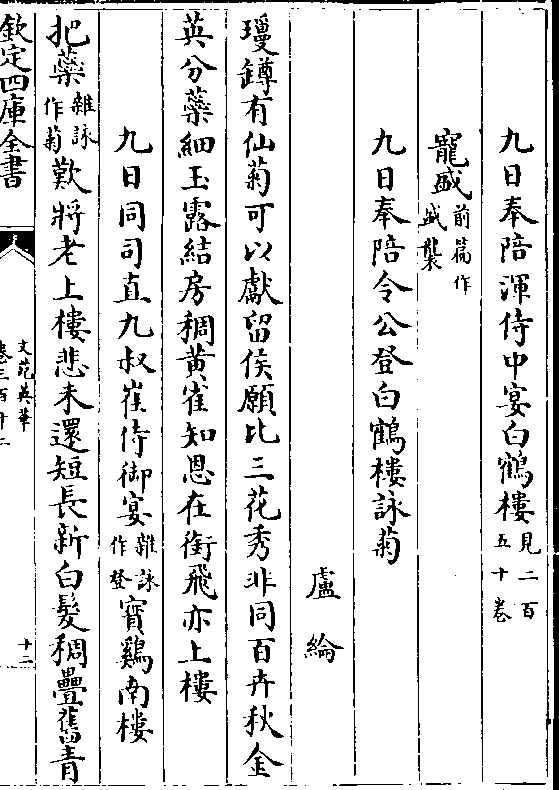 九日奉陪渾侍中宴白鶴樓見二百五十卷
寵盛前篇作盛襲
九日奉陪令公登白鶴樓詠菊
盧綸
瓊罇有仙菊可以獻留侯願比三花秀非同百卉秋金
英分蘂細玉露結房稠黄雀知恩在銜飛亦上樓
九日同司直九叔崔侍御宴雜詠作登寳鷄南樓
把蘂雜詠作菊歎將老上樓悲未還短長新白髮稠疊舊青
欽定四庫全書
文苑英華
卷三百十二
十二